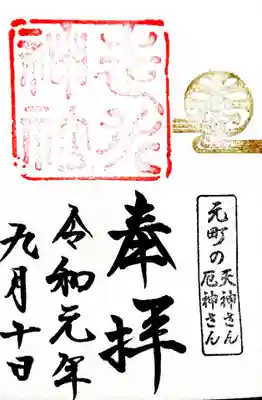 元町の
天神さん
厄神さん
奉拝
令和元年
九月十日